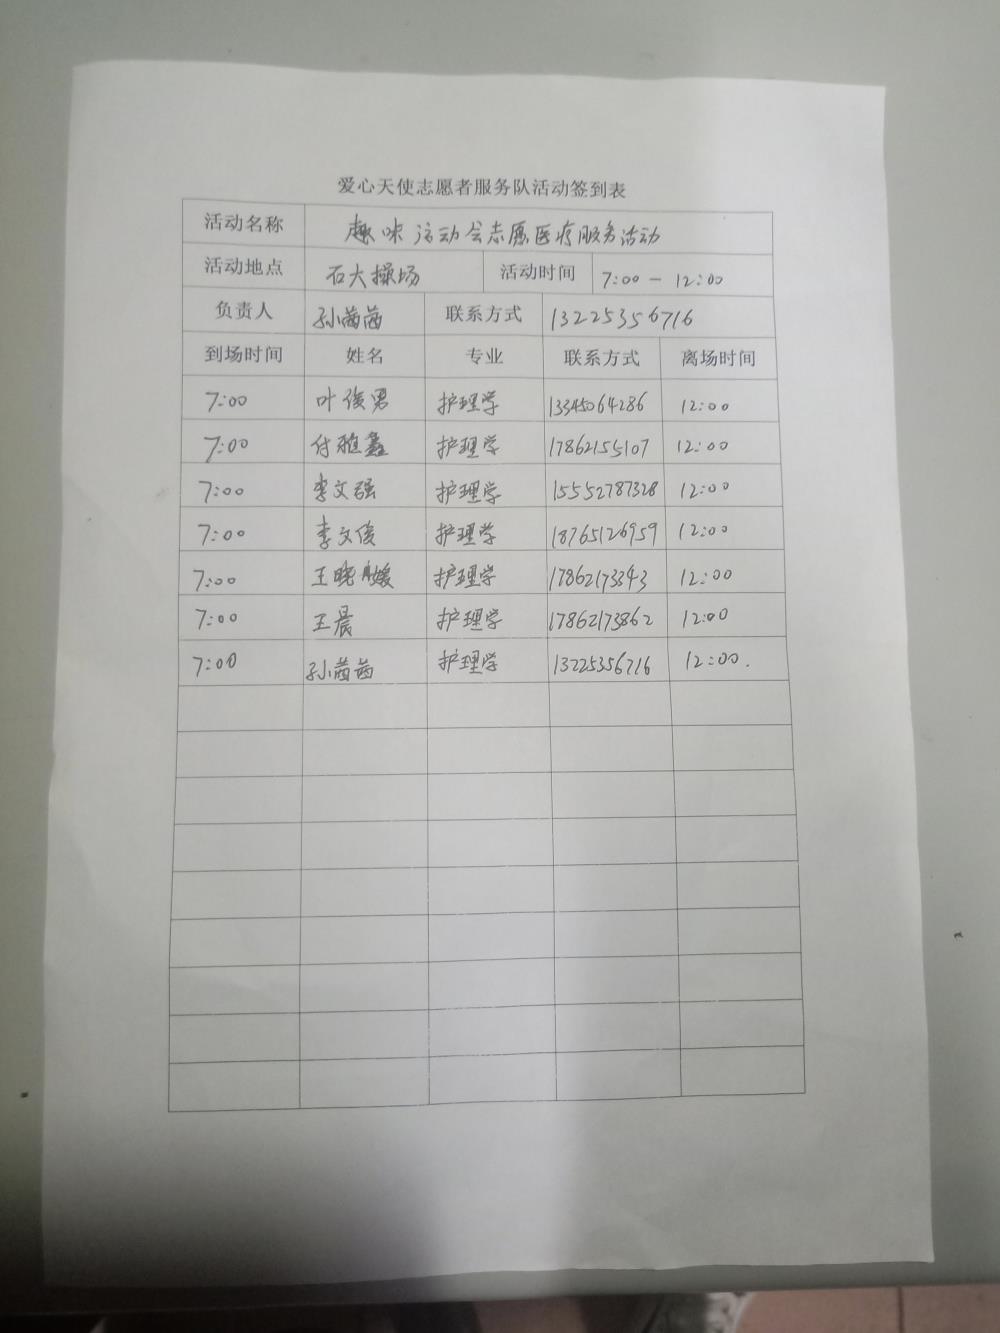 爱心天使志愿者服务队活动签到表
活动名称 趣味运动会志愿医疗服务活动
活动地点 石大操场 活动时间 7:00 - 12:00
负责人 孙茜茜 联系方式 13225356716
到场时间 姓名 专业 联系方式 离场时间
7:00 叶俊男 护理学 13345064286 12:00
7:00 付雅鑫 护理学 17862155107 12:00
7:00 李文强 护理学 15552787328 12:00
7:00 李文俊 护理学 18765126959 12:00
7:00 王晓媛 护理学 17862173343 12:00
7:00 王晨 护理学 17862173862 12:00
7:00 孙茜茜 护理学 13225356716 12:00.